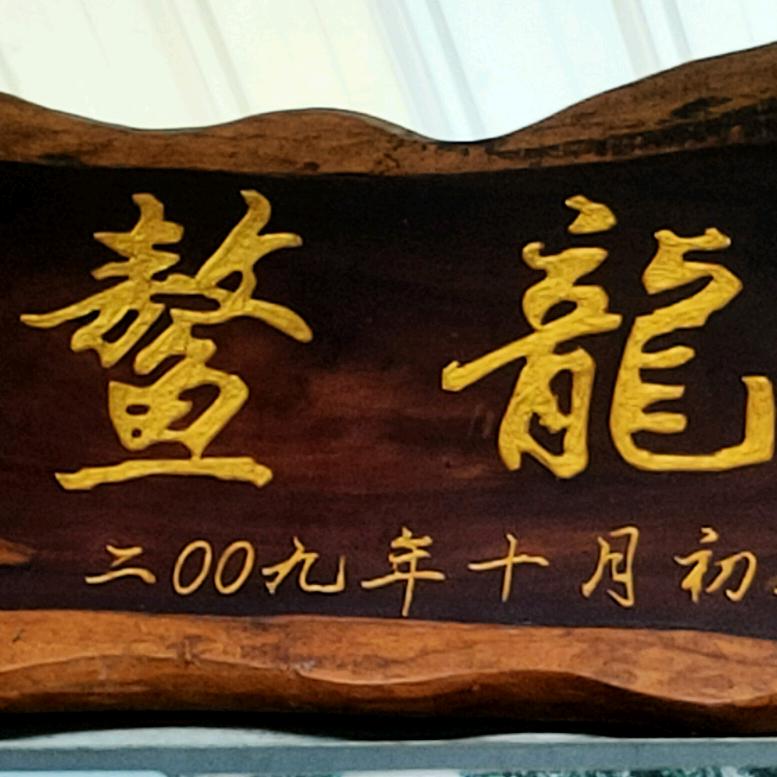 鳌龍
二00九年十月初